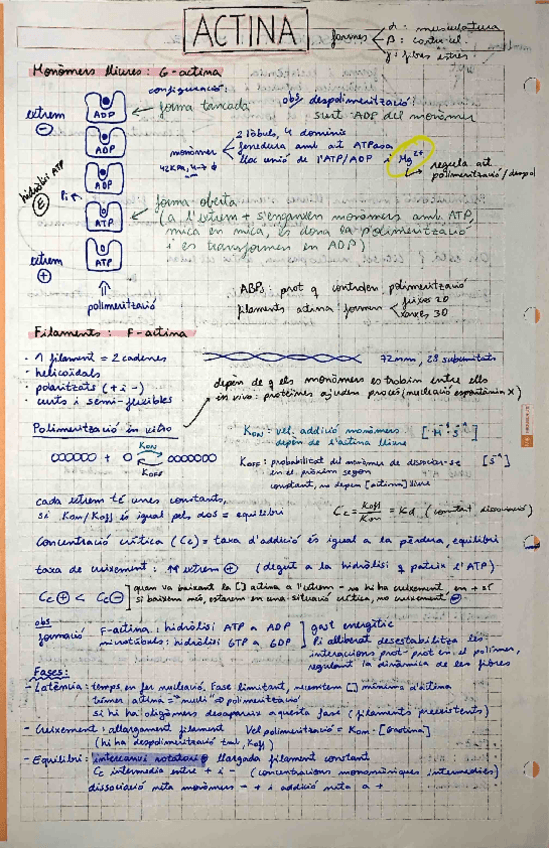 ACTINA
formes
α: musculatura
β: contr. cel.
γ: fibres estrés
Monòmers lliures: G-actina
configuració
forma tancada
obs/ despolimerització:
surt ADP del monòmer
extrem
-
ADP
ADP
ADP
ATP
ATP
hidròlisi ATP
E
Pi
monòmer
42KDa
2 lòbuls, 4 dominis
fenedura amb act ATPasa
lloc unió de l'ATP/ADP i Mg2+
regula act
polimerització/despol
forma oberta
(a l'extrem + s'enganxen monòmers amb ATP,
mica en mica, es dona la polimerització
i es transformen en ADP)
extrem
+
polimerització
ABPs: prot q controlen polimerització
filaments actina formen
feixos 2D
xarxes 3D
Filaments: F-actina
· 1 filament = 2 cadenes
72nm, 28 subunitats
· helicoïdals
· polaritzats (+ i -)
· curts i semi-flexibles
depèn de q els monòmers es trobin entre ells
in vivo: proteïnes ajuden procés (nucleació espontània X)
Polimerització in vitro
KON: vel. addició monòmers [M⁻¹S⁻¹]
depèn de l'actina lliure
KON
KOFF
KOFF: probabilitat del monòmer de dissociar-se [S⁻¹]
en el pròxim segon
constant, no depen [actina] lliure
cada extrem té unes constants,
si Kon/Koff és igual pels dos = equilibri
Cc = Koff/Kon = Kd (constant dissociació)
Concentració crítica (Cc) = taxa d'addició és igual a la pèrdua, equilibri
taxa de creixement: ↑↑ extrem + (degut a la hidròlisi q pateix l'ATP)
Cc + < Cc -
quan va baixant la [] actina a l'extrem - no hi ha creixement, en + sí
si baixem més, estarem en una situació crítica, no creixement
obs
formació
F-actina: hidròlisi ATP a ADP
microtúbuls: hidròlisi GTP a GDP
gast energètic
Pi alliberat desestabilitza les
interaccions prot-prot en el polímer,
regulant la dinàmica de les fibres
Fases:
- Latència: temps en fer nucleació. Fase limitant, necessitem [] mínima d'actina
trímer actina = "nucli" ⇒ polimerització
si hi ha oligòmers desapareix aquesta fase (filaments preexistents)
- Creixement: allargament filament Vel polimerització = Kon · [Gactina]
(hi ha despolimerització tal Koff)
- Equilibri: intercanvi rotatori llargada filament constant
Cc intermèdia entre + i - (concentracions monomèriques intermèdies)
dissociació neta monòmers - + i addició neta a +